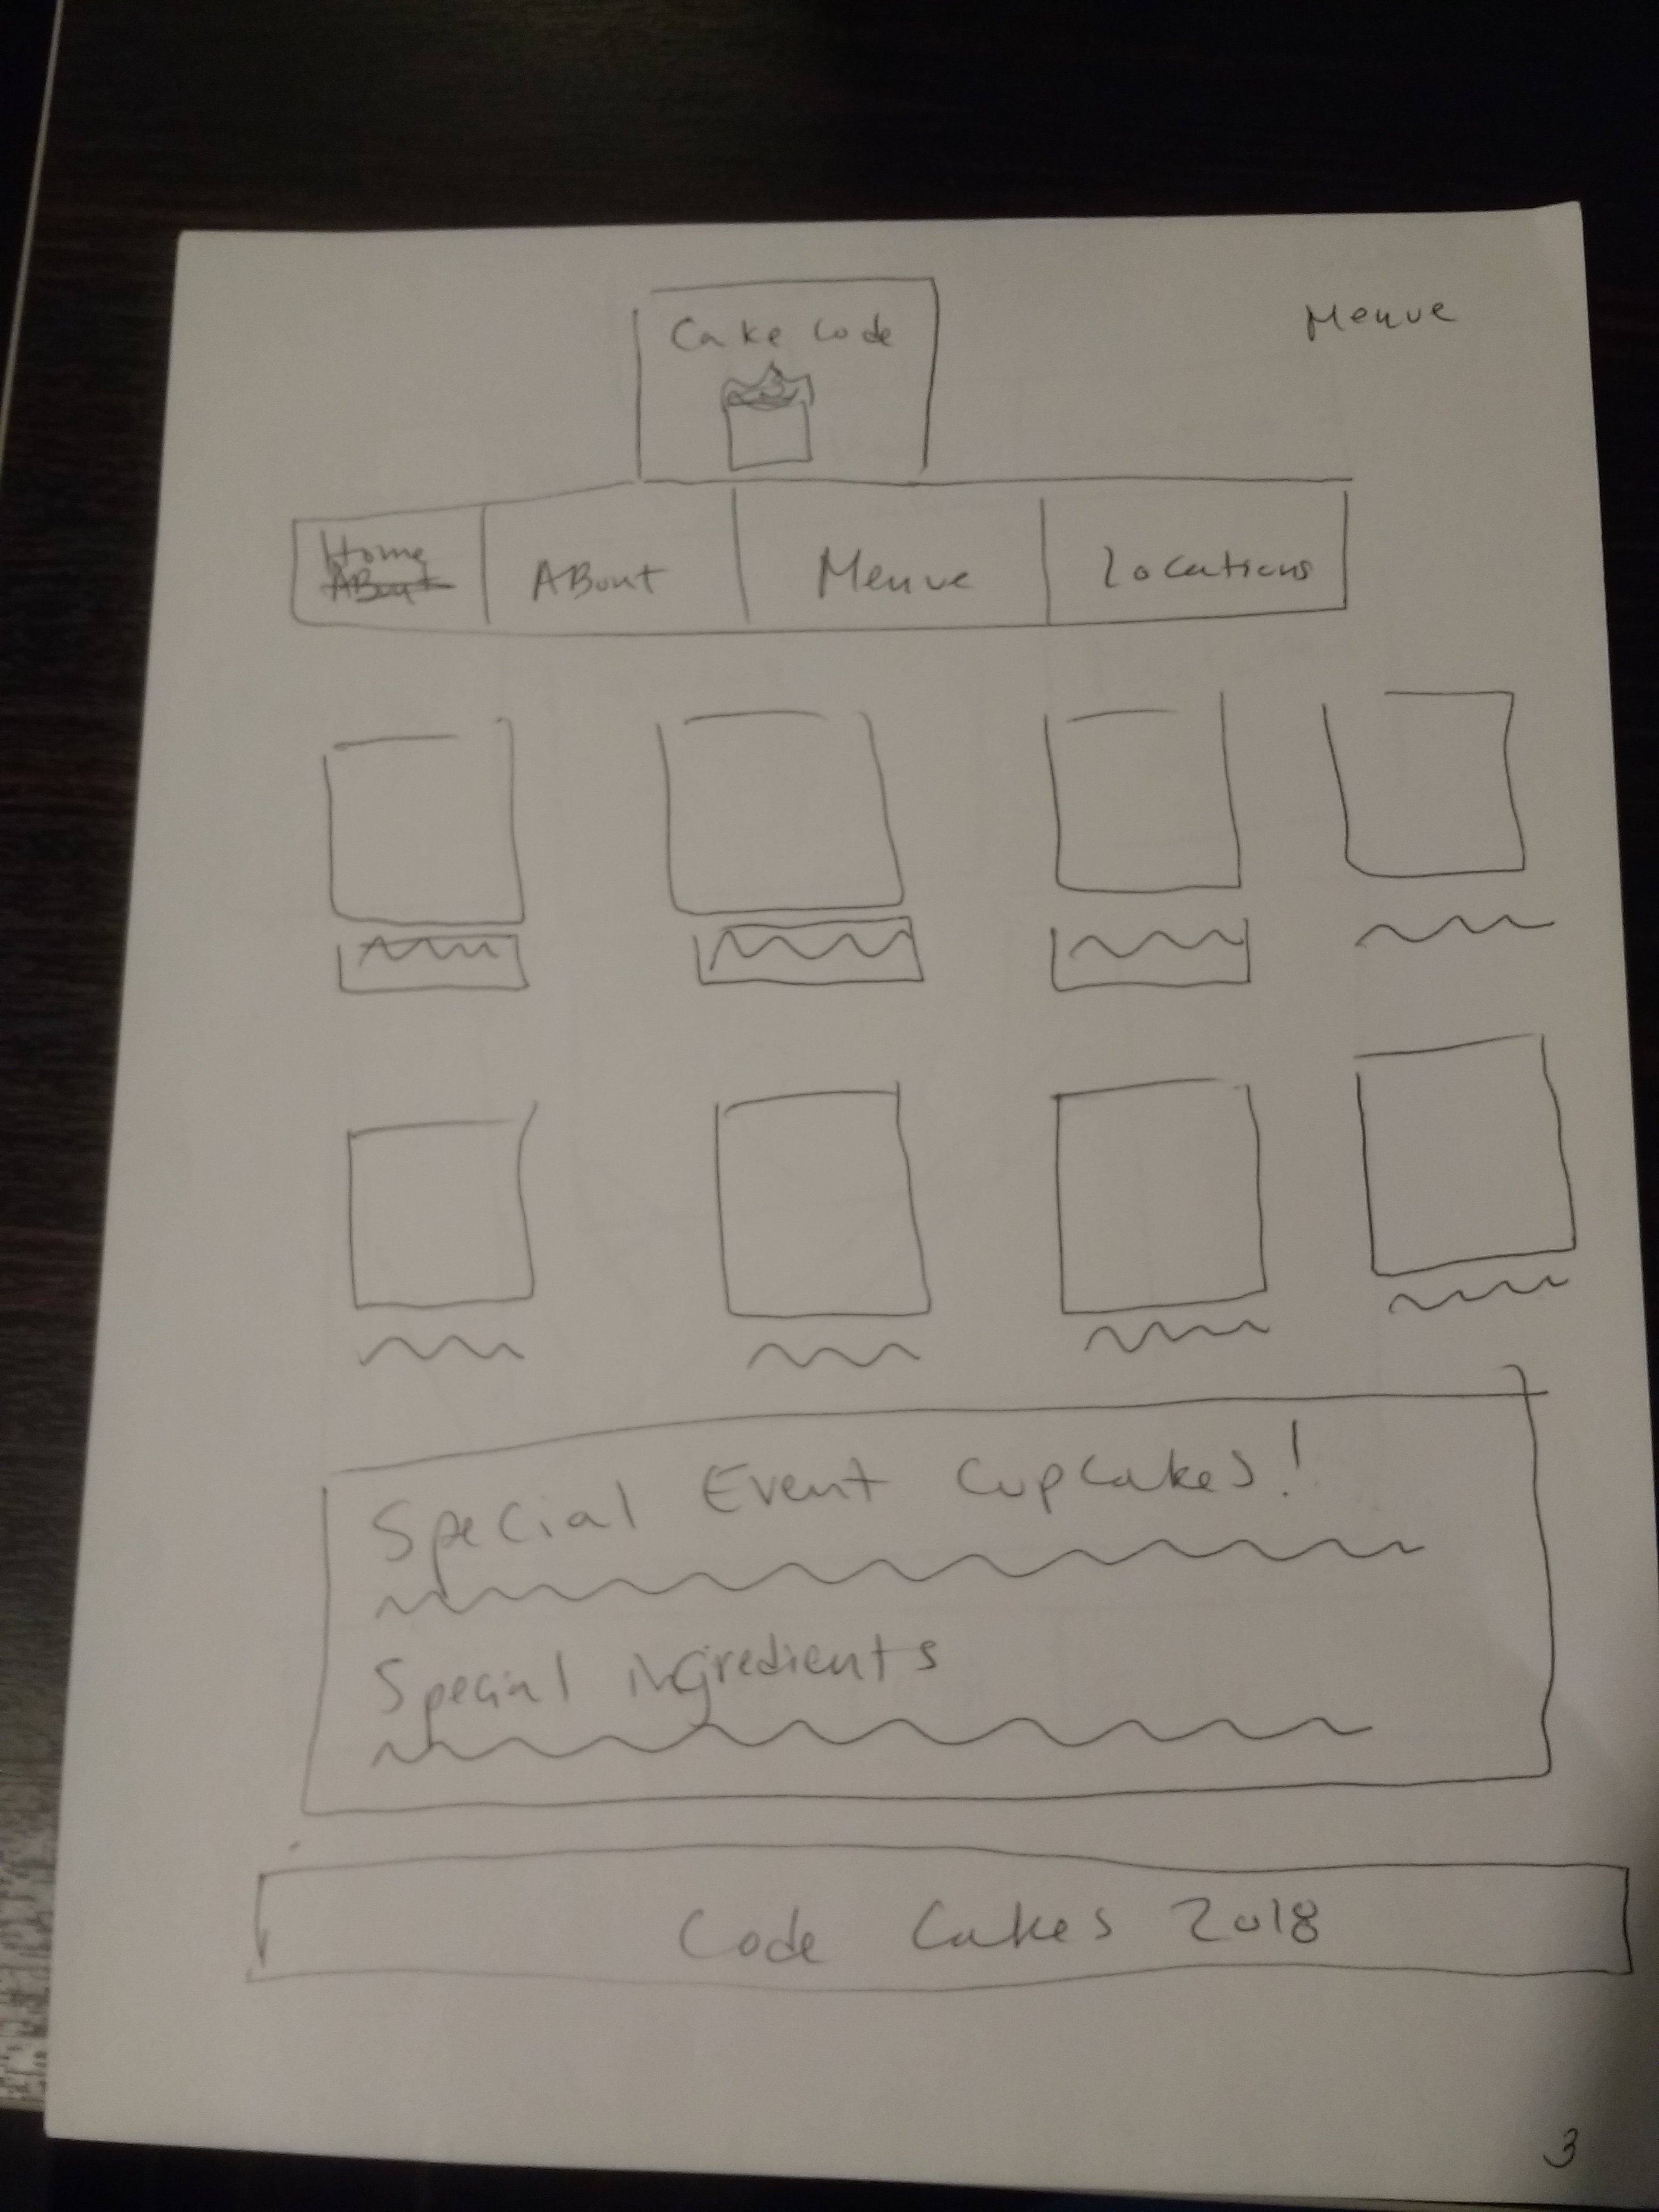 Menue
Cake Code
Home
About
ABout
Menue
Locations
Special Event Cupcakes!
Special ingredients
Code Cakes 2018
3